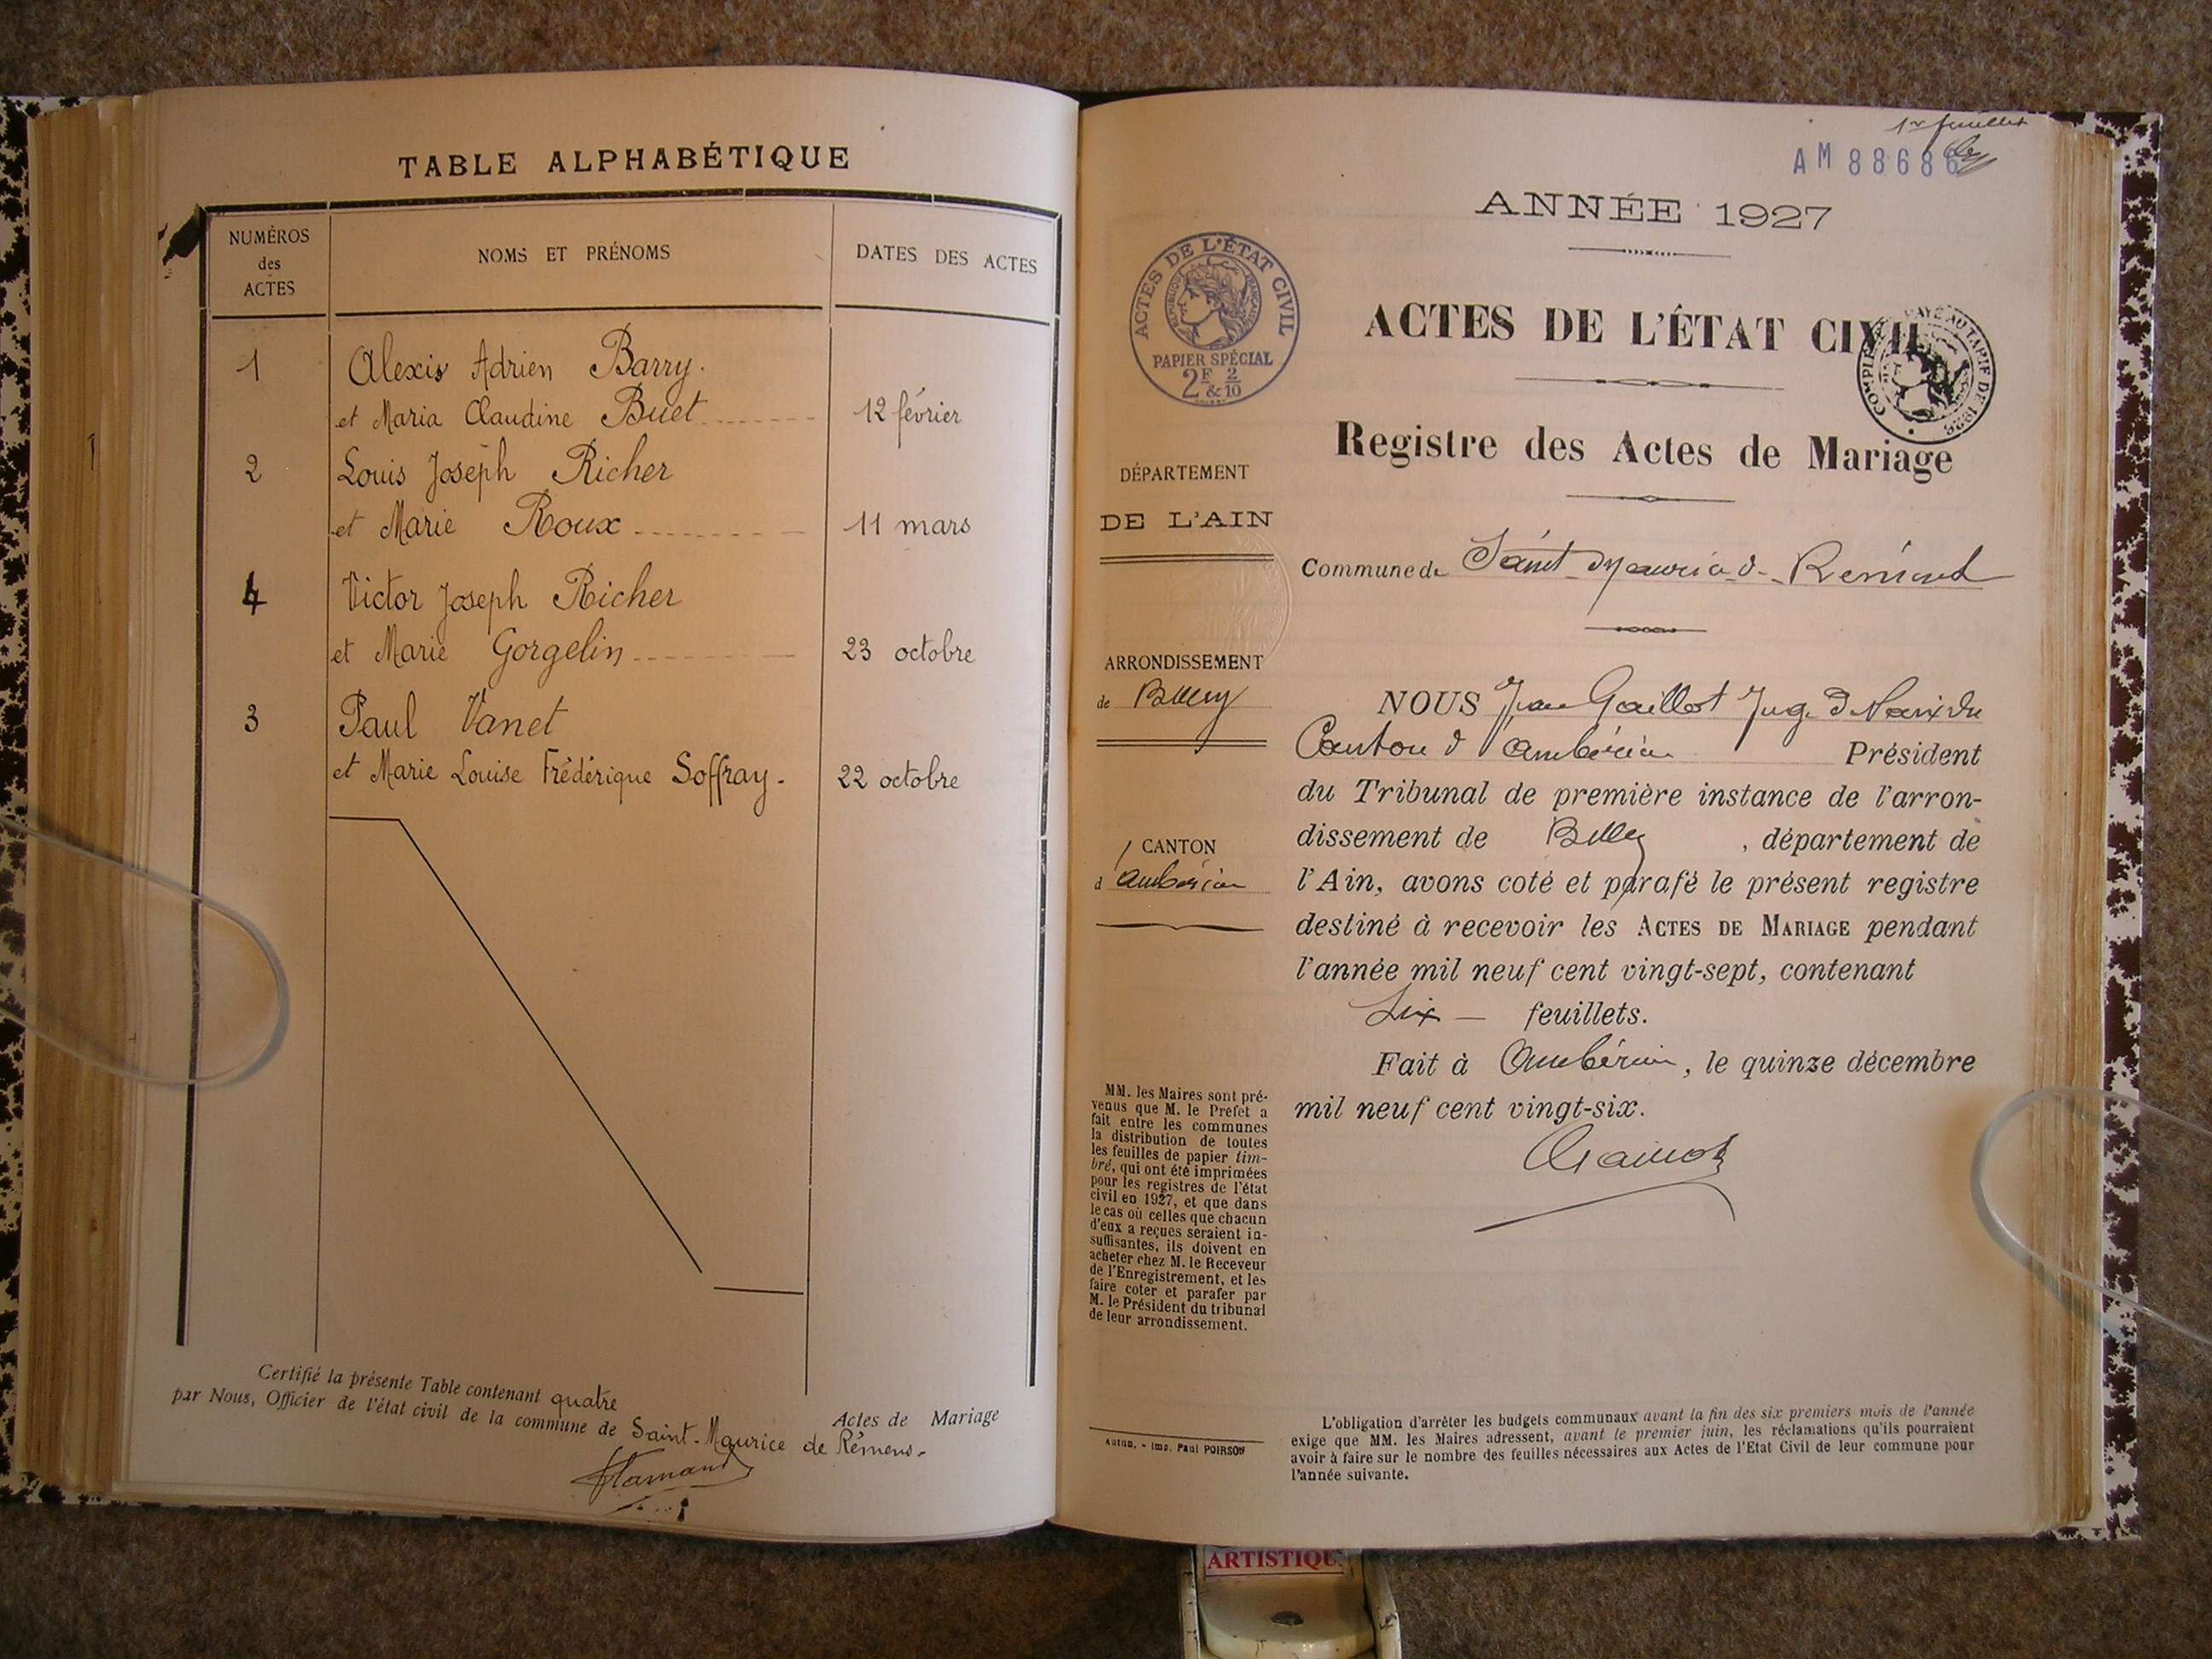 TABLE ALPHABÉTIQUE
NUMÉROS
des
ACTES
NOMS ET PRÉNOMS
DATES DES ACTES
1 Alexis Adrien Barry.
et Maria Claudine Buet 12 février
2 Louis Joseph Richer
et Marie Roux 11 mars
4 Victor Joseph Richer
et Marie Gorgelin 23 octobre
3 Paul Vanet
et Marie Louise Frédérique Soffray. 22 octobre
Certifié la présente Table contenant quatre Actes de Mariage
par Nous, Officier de l'état civil de la commune de Saint-Maurice de Rémens.
1er feuillet
AM 88686
ANNÉE 1927
ACTES DE L'ÉTAT CIVIL
RÉPUBLIQUE FRANÇAISE
PAPIER SPÉCIAL
2F & 2/10
ACTES DE L'ÉTAT CIVIL
Registre des Actes de Mariage
DÉPARTEMENT
DE L'AIN
Commune de Saint-Maurice-d-Remens
ARRONDISSEMENT
de Belley
CANTON
d'Ambérieu
NOUS Jean Gaillot Juge d Paix du
Canton d'Ambérieu Président
du Tribunal de première instance de l'arron-
dissement de Belley, département de
l'Ain, avons coté et parafé le présent registre
destiné à recevoir les ACTES DE MARIAGE pendant
l'année mil neuf cent vingt-sept, contenant
Six feuillets.
Fait à Ambérieu, le quinze décembre
mil neuf cent vingt-six.
Gaillot
MM. les Maires sont pré-
venus que M. le Préfet a
fait entre les communes
la distribution de toutes
les feuilles de papier tim-
bré, qui ont été imprimées
pour les registres de l'état
civil en 1927, et que dans
le cas où celles que chacun
d'eux a reçues seraient in-
suffisantes, ils doivent en
acheter chez M. le Receveur
de l'Enregistrement, et les
faire coter et parafer par
M. le Président du tribunal
de leur arrondissement.
Autun. - Imp. Paul POIRSON
L'obligation d'arrêter les budgets communaux avant la fin des six premiers mois de l'année
exige que MM. les Maires adressent, avant le premier juin, les réclamations qu'ils pourraient
avoir à faire sur le nombre des feuilles nécessaires aux Actes de l'Etat Civil de leur commune pour
l'année suivante.
ARTISTIQU